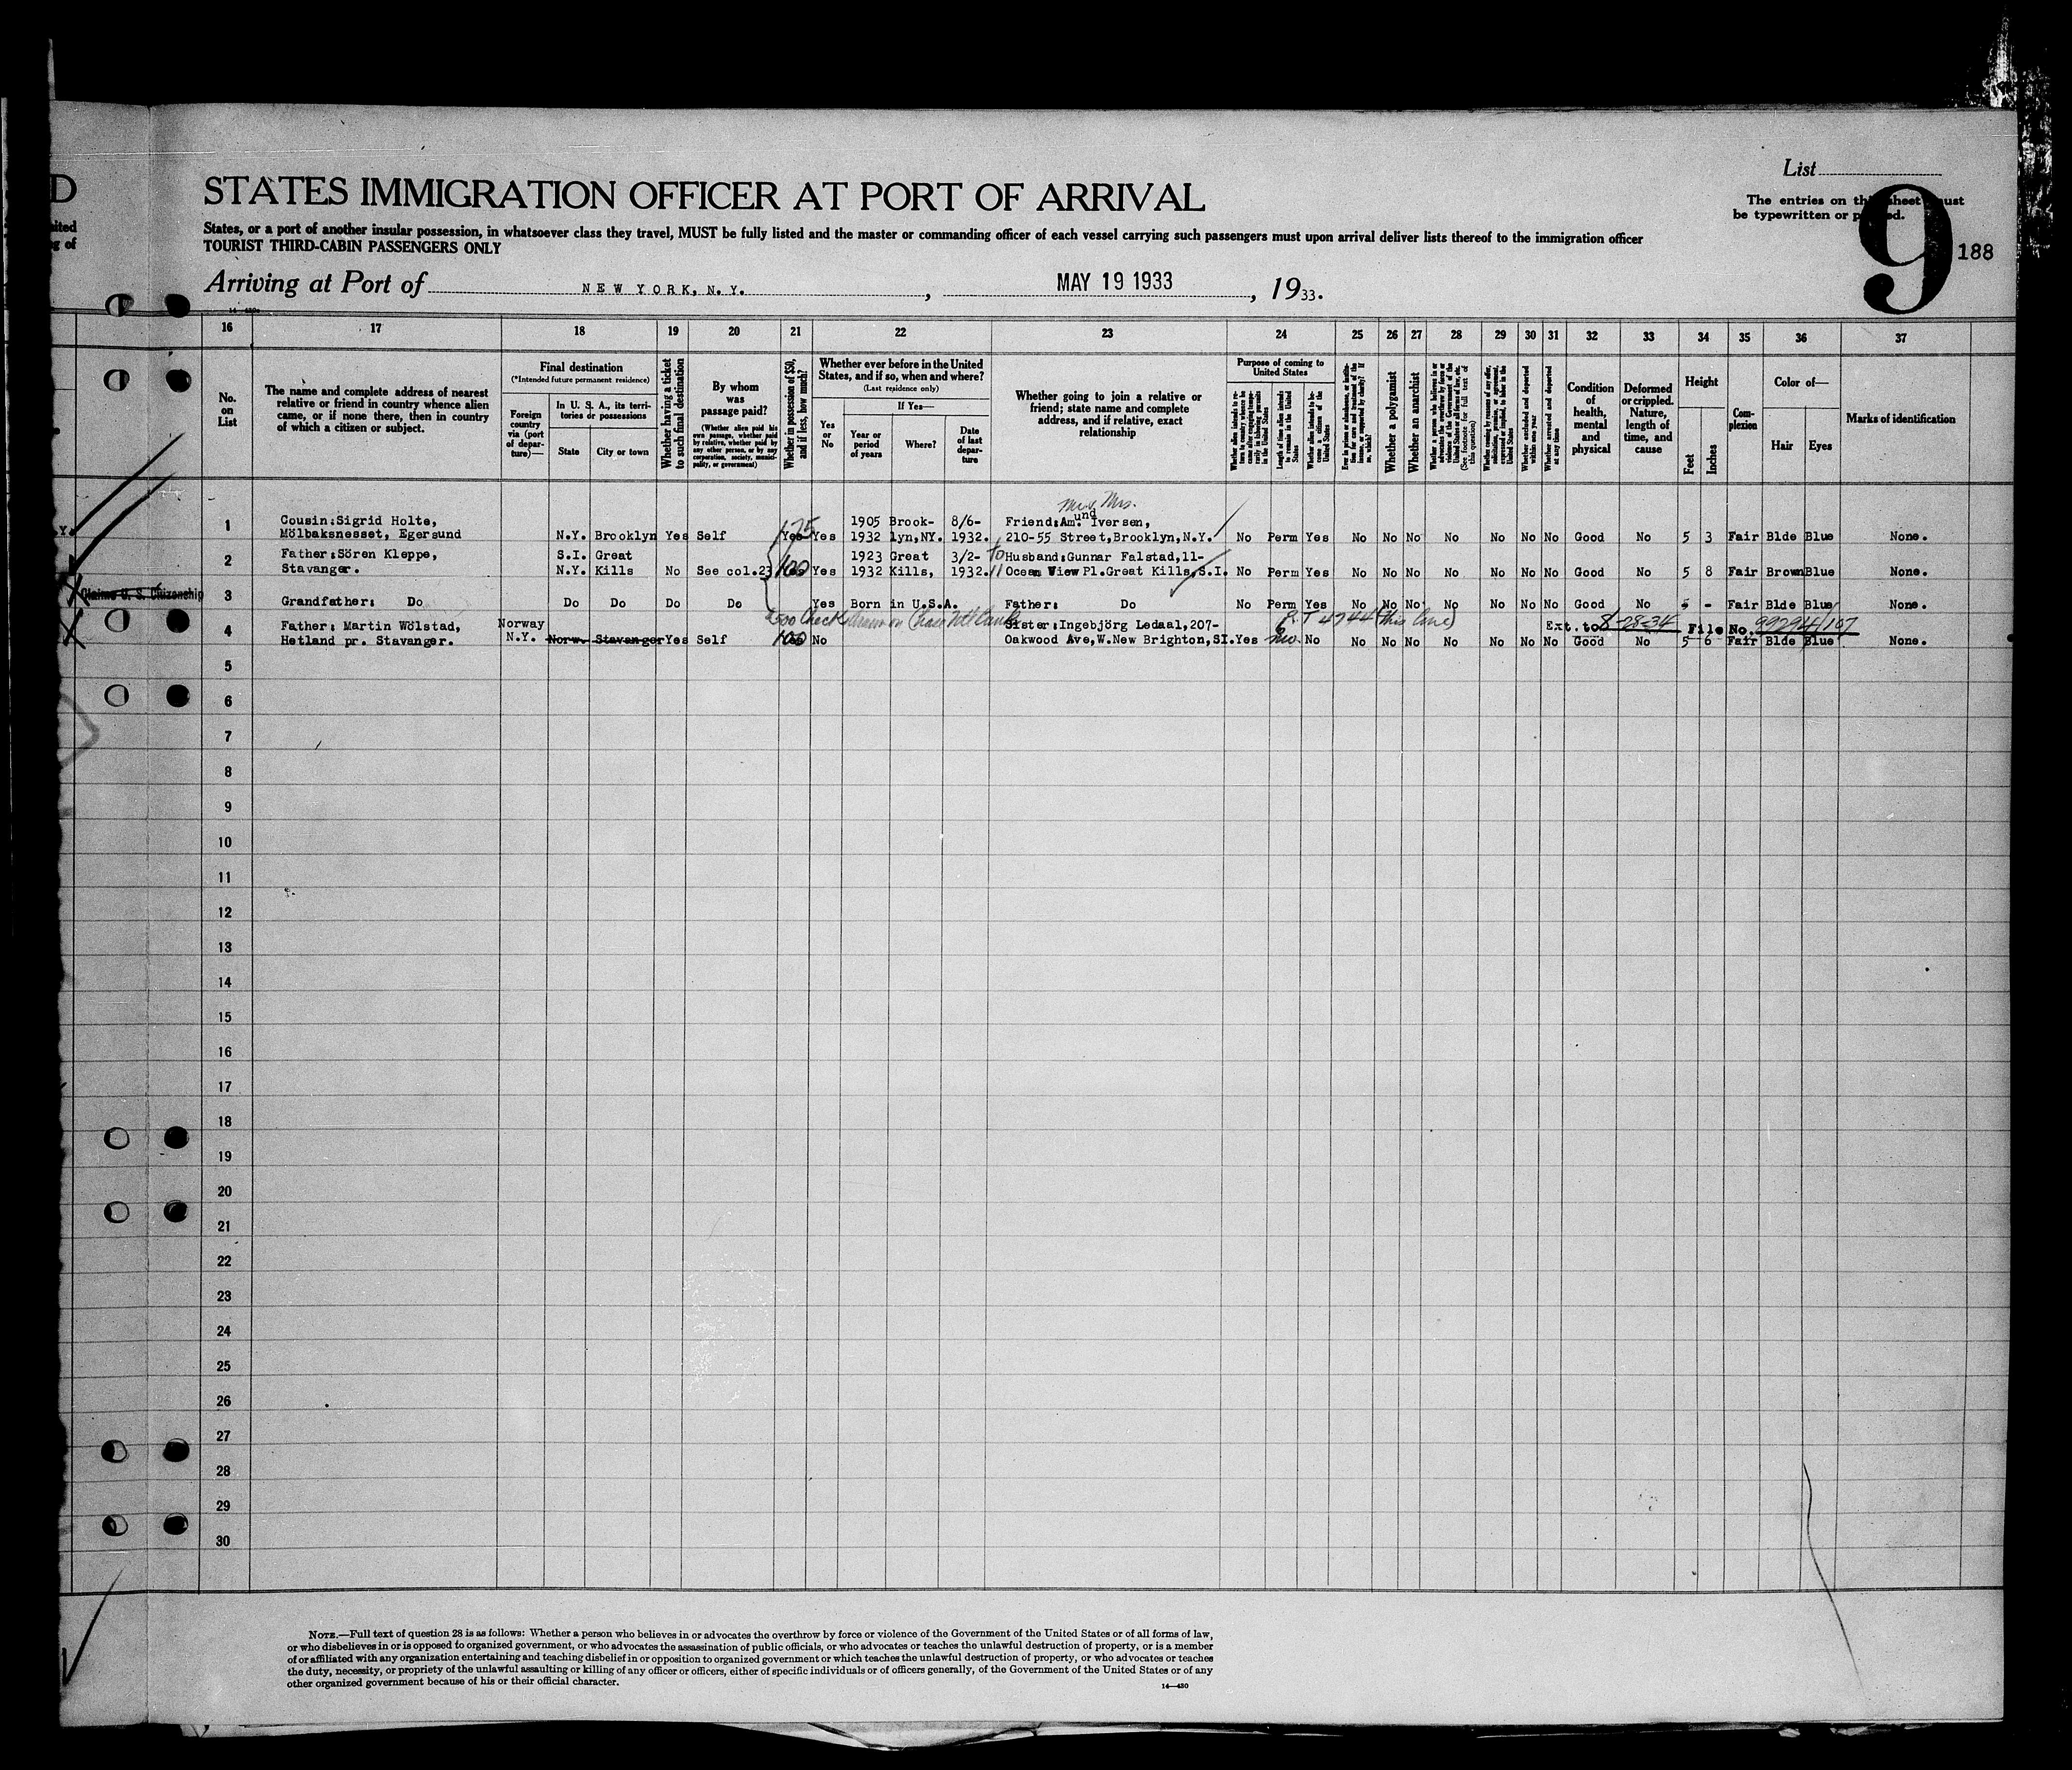 D
STATES IMMIGRATION OFFICER AT PORT OF ARRIVAL
List
The entries on this sheet must
be typewritten or printed.
9
188
States, or a port of another insular possession, in whatsoever class they travel, MUST be fully listed and the master or commanding officer of each vessel carrying such passengers must upon arrival deliver lists thereof to the immigration officer
TOURIST THIRD-CABIN PASSENGERS ONLY
Arriving at Port of NEW YORK, N. Y. , MAY 19 1933 , 1933.
16 17 18 19 20 21 22 23 24 25 26 27 28 29 30 31 32 33 34 35 36 37
No. on List
The name and complete address of nearest relative or friend in country whence alien came, or if none there, then in country of which a citizen or subject.
Final destination
(*Intended future permanent residence)
Foreign country via (port of departure)—
In U. S. A., its territories or possessions
State
City or town
Whether having a ticket to such final destination
By whom was passage paid?
(Whether alien paid his own passage, whether paid by relative, whether paid by any other person, or by any corporation, society, municipality, or government)
Whether in possession of $50, and if less, how much?
Whether ever before in the United States, and if so, when and where?
(Last residence only)
Yes or No
If Yes—
Year or period of years
Where?
Date of last departure
Whether going to join a relative or friend; state name and complete address, and if relative, exact relationship
Purpose of coming to United States
Length of time alien intends to remain in the United States
Whether alien intends to become a citizen of the United States
Whether a polygamist
Whether an anarchist
(See footnote for full text of this question)
Whether excluded and deported within one year
Whether arrested and deported at any time
Condition of health, mental and physical
Deformed or crippled. Nature, length of time, and cause
Height
Feet
Inches
Complexion
Color of—
Hair
Eyes
Marks of identification
Mr & Mrs.
1 Cousin:Sigrid Holte, 1905 Brook- 8/6- Friend:Amund Iversen,
Mölbaksnesset, Egersund N.Y. Brooklyn Yes Self 175 Yes Yes 1932 lyn,NY. 1932. 210-55 Street,Brooklyn,N.Y. No Perm Yes No No No No No No No Good No 5 3 Fair Blde Blue None.
2 Father:Sören Kleppe, S.I. Great 1923 Great 3/2- to Husband:Gunnar Falstad,11-
Stavanger. N.Y. Kills No See col.23 100 Yes 1932 Kills, 1932. 11 Ocean View Pl.Great Kills,S.I. No Perm Yes No No No No No No No Good No 5 8 Fair Brown Blue None.
Claims U. S. Citizenship
3 Grandfather: Do Do Do Do Do Yes Born in U.S.A. Father: Do No Perm Yes No No No No No No No Good No 5 - Fair Blde Blue None.
4 Father: Martin Wölstad, Norway Sister:Ingebjörg Ledaal,207- (this line) Ext. to 8-28-34 File No. 99294/107
Hetland pr. Stavanger. N.Y. Norw. Stavanger Yes Self 100 No Oakwood Ave,W.New Brighton,SI. Yes 6 mo. No No No No No No No No Good No 5 6 Fair Blde Blue None.
5
6
7
8
9
10
11
12
13
14
15
16
17
18
19
20
21
22
23
24
25
26
27
28
29
30
NOTE.—Full text of question 28 is as follows: Whether a person who believes in or advocates the overthrow by force or violence of the Government of the United States or of all forms of law,
or who disbelieves in or is opposed to organized government, or who advocates the assassination of public officials, or who advocates or teaches the unlawful destruction of property, or is a member
of or affiliated with any organization entertaining and teaching disbelief in or opposition to organized government or which teaches the unlawful destruction of property, or who advocates or teaches
the duty, necessity, or propriety of the unlawful assaulting or killing of any officer or officers, either of specific individuals or of officers generally, of the Government of the United States or of any
other organized government because of his or their official character.
14—430